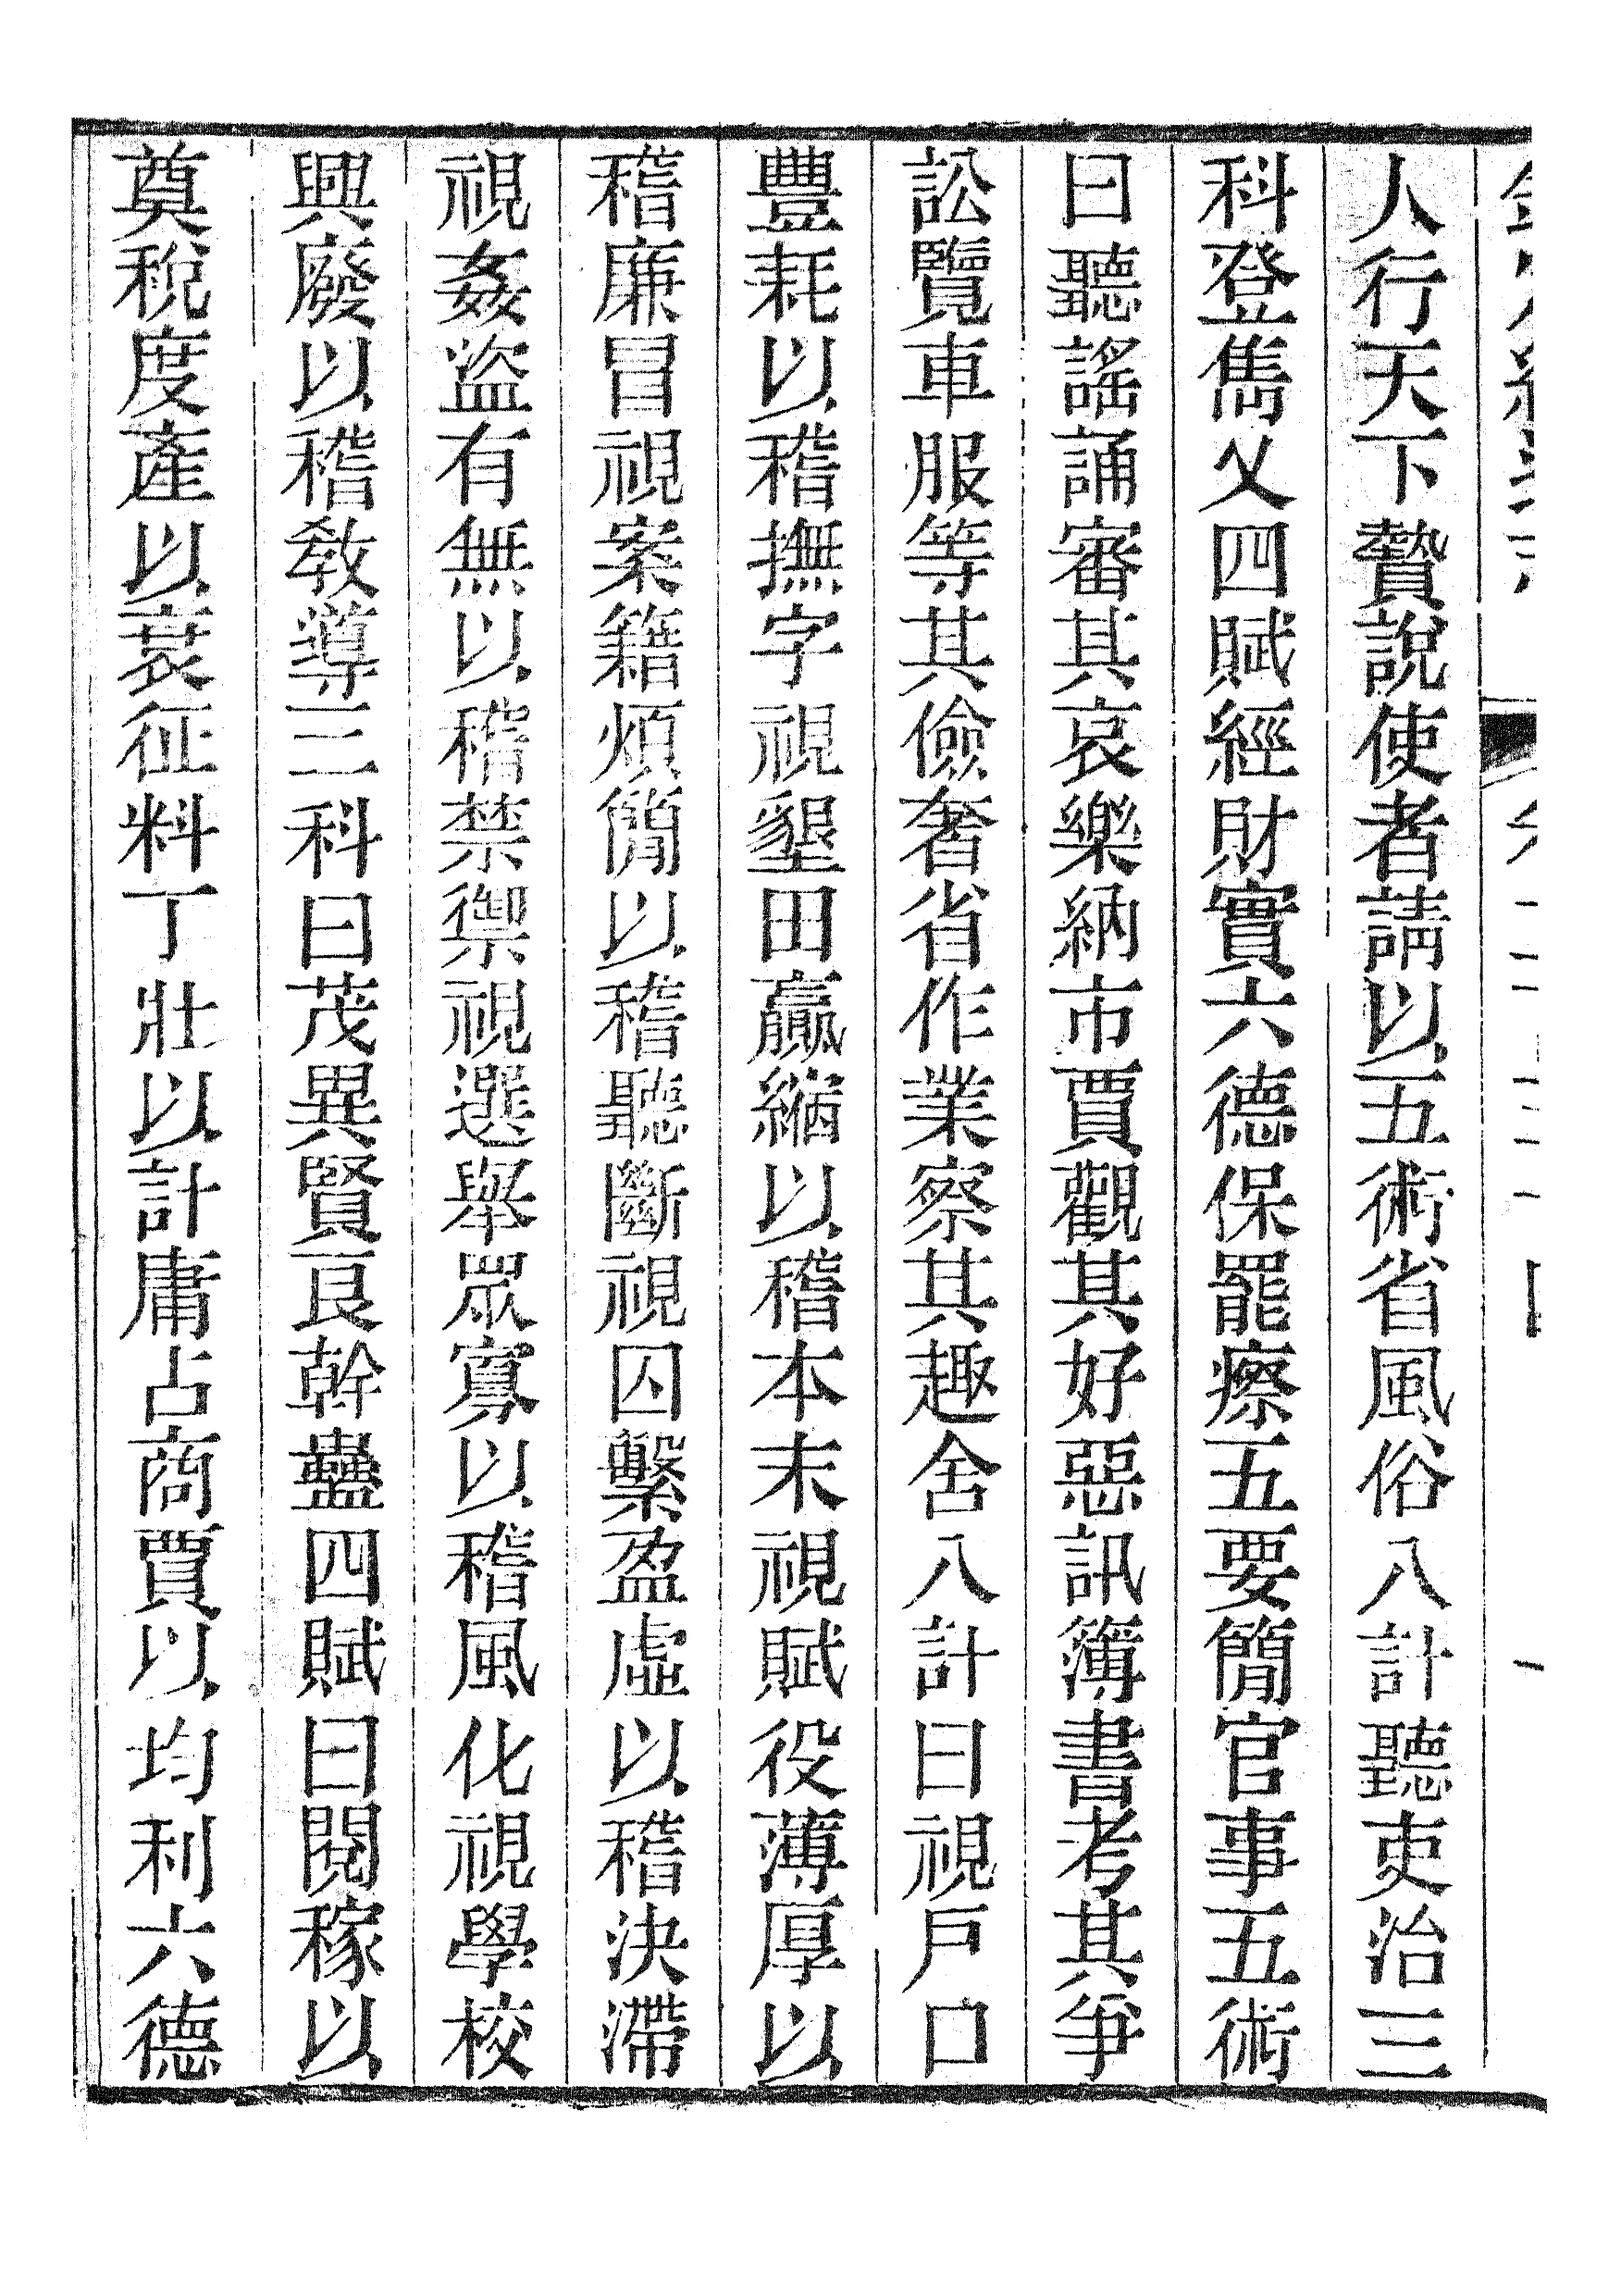 人行天下贄說使者請以五術省風俗八計聽吏治三
科登雋乂四賦經財實六德保罷瘵五要簡官事五術
曰聽謠誦審其哀樂納市賈觀其好惡訊簿書考其爭
訟覽車服等其儉奢省作業察其趣舍八計曰視戶口
豐耗以稽撫字視墾田贏縮以稽本末視賦役薄厚以
稽廉冒視案籍煩簡以稽聽斷視囚繫盈虛以稽決滯
視姦盜有無以稽禁禦視選舉眾寡以稽風化視學校
興廢以稽教導三科曰茂異賢良幹蠱四賦曰閱稼以
奠稅度產以裒征料丁壯以計庸占商賈以均利六德